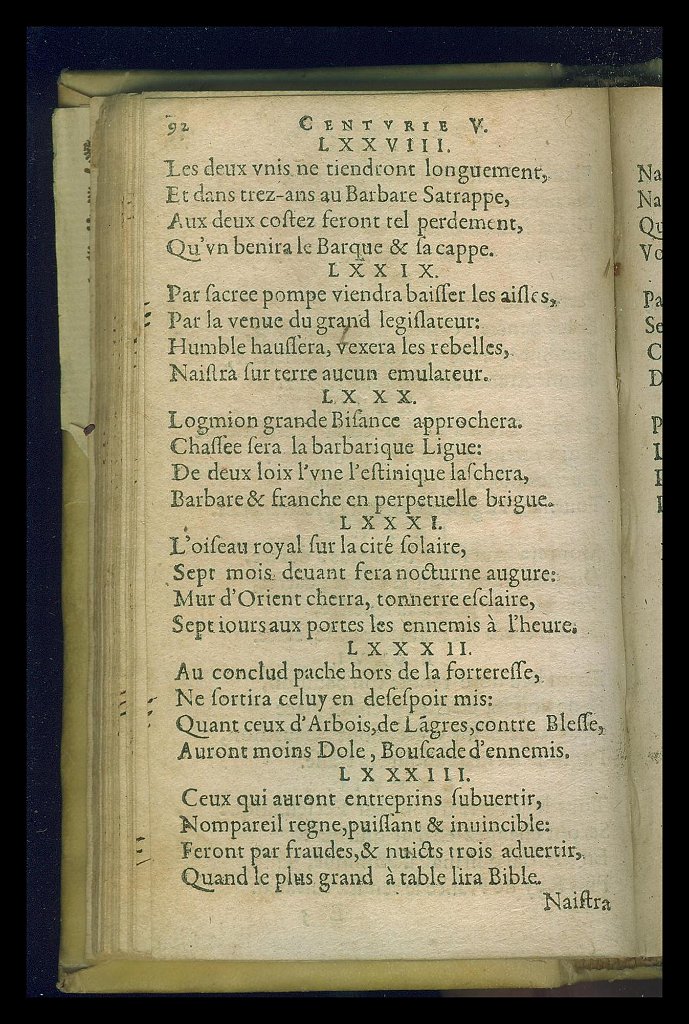 92 CENTVRIE V.
LXXVIII.
Les deux vnis ne tiendront longuement,
Et dans trez-ans au Barbare Satrappe,
Aux deux coſtez feront tel perdement,
Qu'vn benira le Barque & ſa cappe.
LXXIX.
Par ſacree pompe viendra baiſſer les aiſles,
Par la venue du grand legiſlateur:
Humble hauſſera, vexera les rebelles,
Naiſtra ſur terre aucun emulateur.
LXXX.
Logmion grande Biſance approchera.
Chaſſee ſera la barbarique Ligue:
De deux loix l'vne l'eſtinique laſchera,
Barbare & franche en perpetuelle brigue.
LXXXI.
L'oiſeau royal ſur la cité ſolaire,
Sept mois deuant fera nocturne augure:
Mur d'Orient cherra, tonnerre eſclaire,
Sept iours aux portes les ennemis à l'heure.
LXXXII.
Au conclud pache hors de la fortereſſe,
Ne ſortira celuy en deſeſpoir mis:
Quant ceux d'Arbois, de Lãgres, contre Bleſſe,
Auront moins Dole, Bouſcade d'ennemis.
LXXXIII.
Ceux qui auront entreprins ſubuertir,
Nompareil regne, puiſſant & inuincible:
Feront par fraudes, & nuicts trois aduertir,
Quand le plus grand à table lira Bible.
Naiſtra
Na
Na
Qu
Vo
Pa
Se
C
D